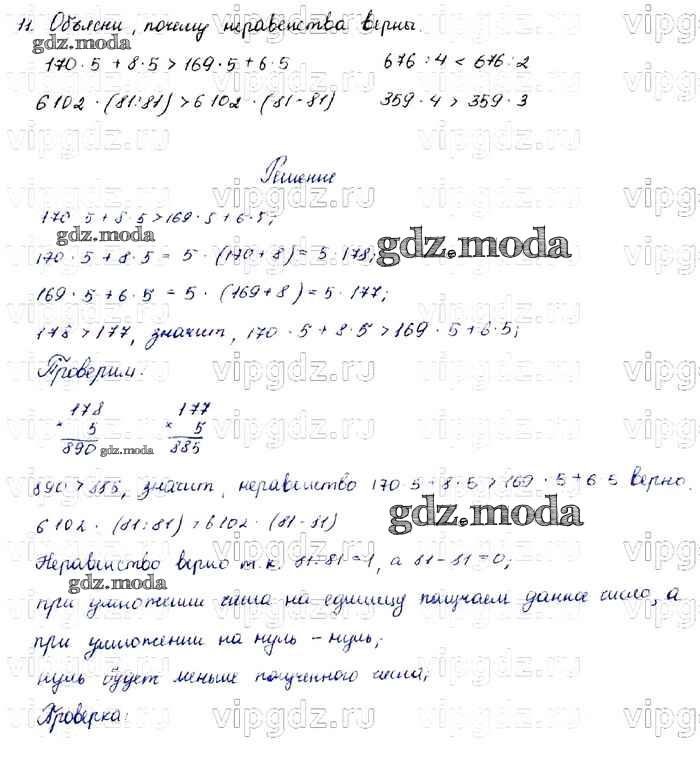 11. Объясни, почему неравенства верны.
gdz.moda
170 · 5 + 8 · 5 > 169 · 5 + 6 · 5 676 : 4 < 676 : 2
6102 · (81:81) > 6102 · (81-81) 359 · 4 > 359 · 3
vipgdz.ru vipgdz.ru vipgdz.ru
Решение
170 5 + 8 5 > 169 · 5 + 6 · 5;
gdz.moda
170 · 5 + 8 · 5 = 5 · (170 + 8) = 5 · 178;
gdz.moda
169 · 5 + 6 · 5 = 5 · (169 + 8) = 5 · 177;
178 > 177, значит, 170 · 5 + 8 · 5 > 169 · 5 + 6 · 5;
Проверим:
178 177
× 5 × 5
890 885
gdz.moda
890 > 885, значит, неравенство 170 · 5 + 8 · 5 > 169 · 5 + 6 5 верно.
gdz.moda
6102 · (81:81) > 6102 · (81-81)
Неравенство верно т.к. 81:81=1, а 81-81=0;
gdz.moda
при умножении числа на единицу получаем данное число, а
при умножении на нуль - нуль;
нуль будет меньше полученного числа;
gdz.moda
Проверка:
vipgdz.ru vipgdz.ru vipgdz.ru